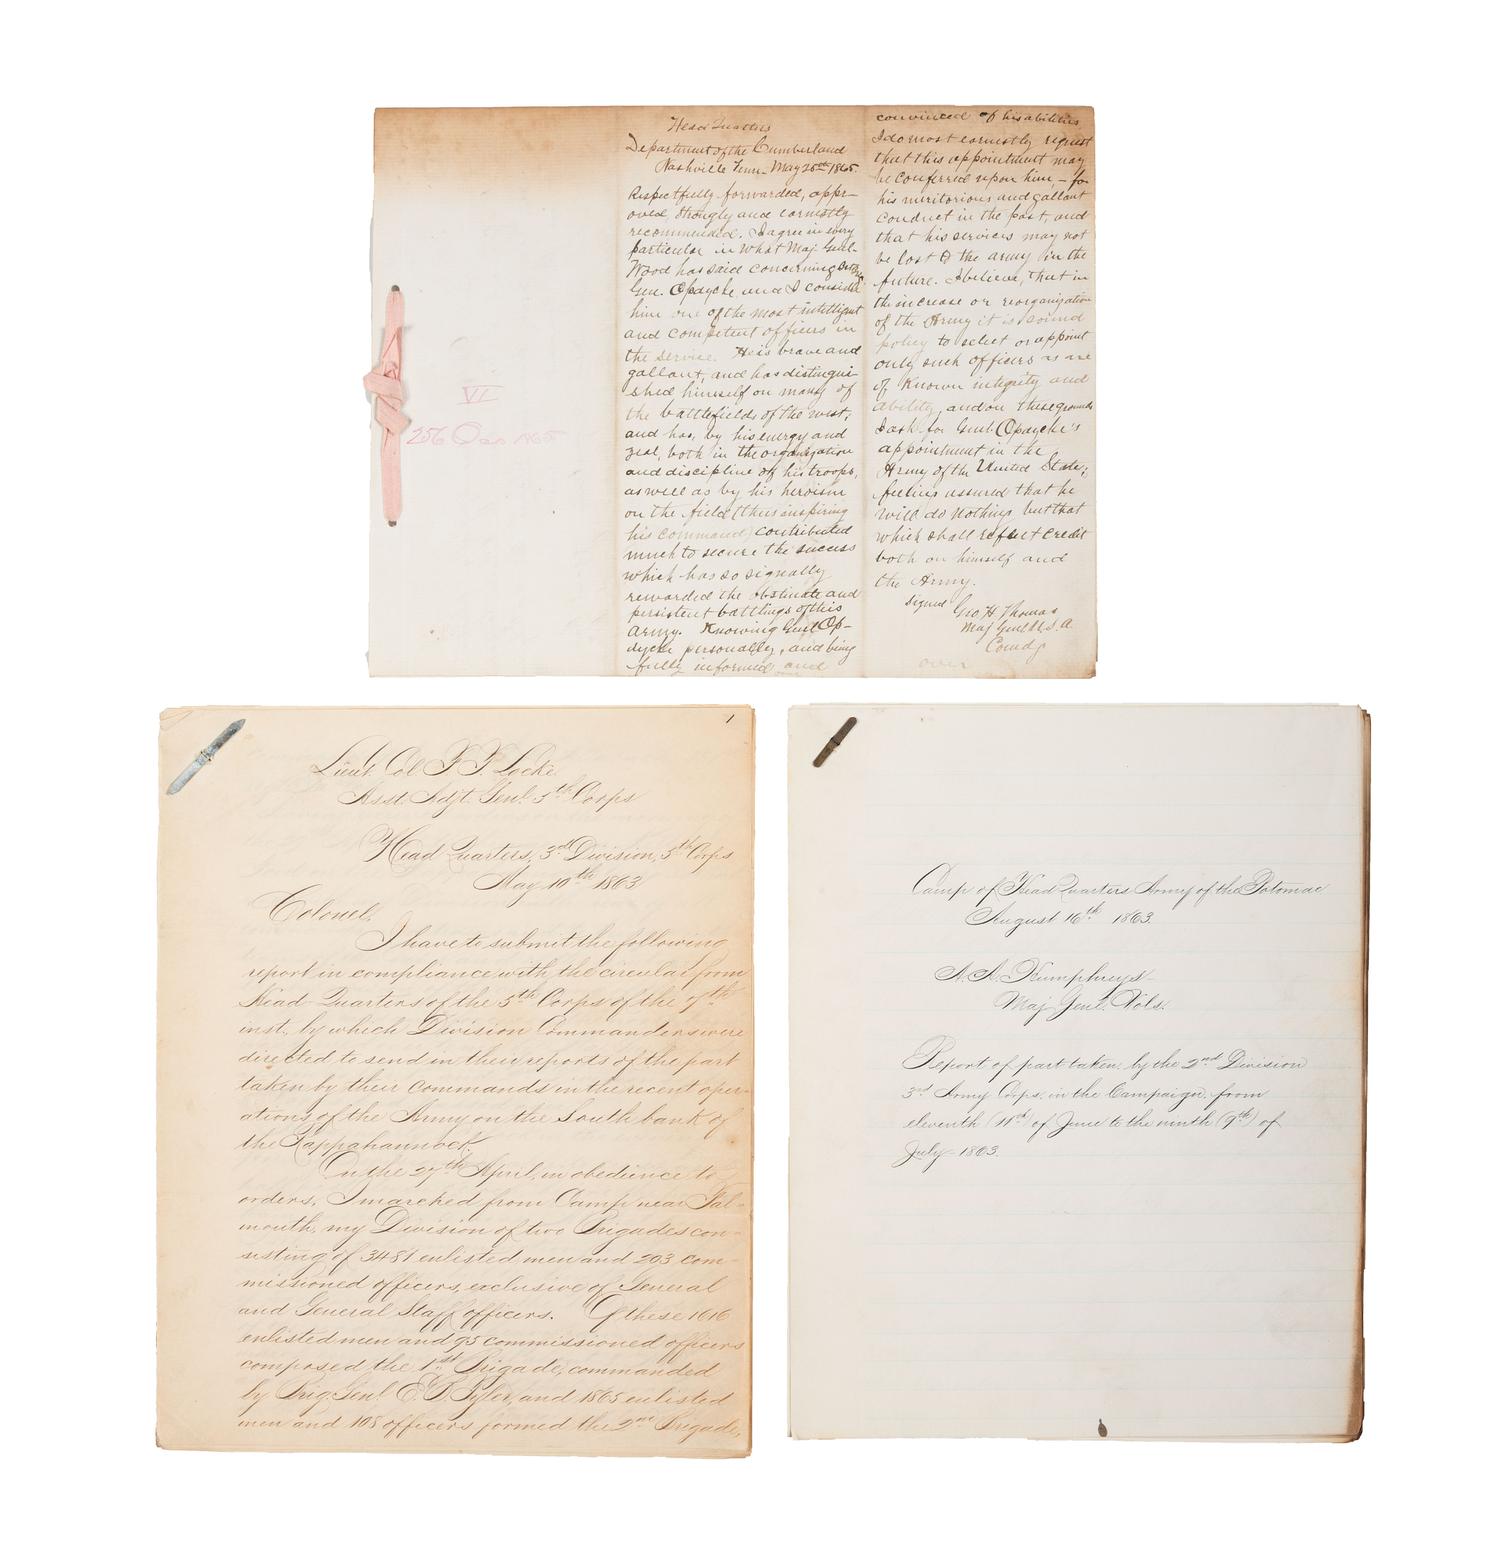 VI
256 O 1865
Head Quarters
Department of the Cumberland
Nashville Tenn. May 25th 1865.
Respectfully forwarded, appr-
oved, strongly and earnestly
recommended. I agree in every
particular in what Maj. Genl.
Wood has said concerning Bvt Brig
Gen. Opdycke, and I consider
him one of the most intelligent
and competent officers in
the service. He is brave and
gallant, and has distingui-
shed himself on many of
the battlefields of the west,
and has, by his energy and
zeal, both in the organization
and discipline of his troops,
as well as by his heroism
on the field (thus inspiring
his command) contributed
much to secure the success
which has so signally
rewarded the obstinate and
persistent battlings of this
Army. Knowing Genl Op-
dycke personally, and being
fully informed and
convinced of his abilities,
I do most earnestly request
that this appointment may
be conferred upon him, - for
his meritorious and gallant
conduct in the past, and
that his services may not
be lost to the army in the
future. I believe, that in
the increase or reorganization
of the Army it is sound
policy to select or appoint
only such officers as are
of known integrity and
ability, and on these grounds
I ask for Genl. Opdycke's
appointment in the
Army of the United States;
feeling assured that he
will do nothing but that
which shall reflect credit
both on himself and
the Army.
signed Geo. H. Thomas
Maj Genl U.S.A.
Comdg
over
1
Lieut. Col F. T. Locke.
Asst. Adjt. Genl. 5th Corps
Head Quarters, 3rd Division, 5th Corps
May 10th 1863
Colonel,
I have to submit the following
report in compliance with the circular from
Head-Quarters of the 5th Corps of the 7th
inst. by which Division Commanders were
directed to send in their reports of the part
taken by their commands in the recent oper-
ations of the Army on the South bank of
the Rappahannock.
On the 27th April, in obedience to
orders, I marched from Camp near Fal-
mouth, my Division of two Brigades con-
sisting of 3481 enlisted men and 203 com-
missioned officers, exclusive of General
and General Staff officers. Of these 1616
enlisted men and 95 commissioned officers
composed the 1st Brigade, commanded
by Brig. Genl. E. B. Tyler, and 1865 enlisted
men and 108 officers formed the 2nd Brigade,
Camp of Head Quarters Army of the Potomac
August 16th 1863.
A. A. Humphreys-
Maj. Genl. Vols.
Report of part taken by the 2nd Division
3rd Army Corps, in the Campaign, from
eleventh (11th) of June to the ninth (9th) of
July 1863.